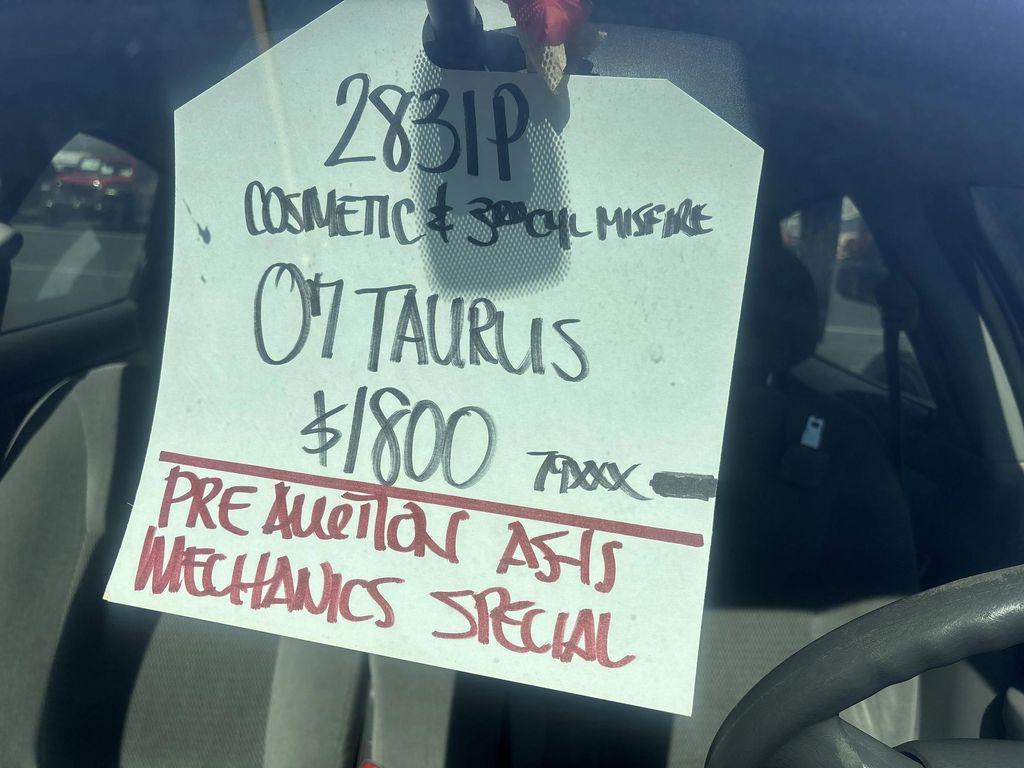 2831P
COSMETIC & 3RD CYL MISFIRE
07 TAURUS
$1800
79XXX
PRE AUCTION AS-IS
MECHANICS SPECIAL